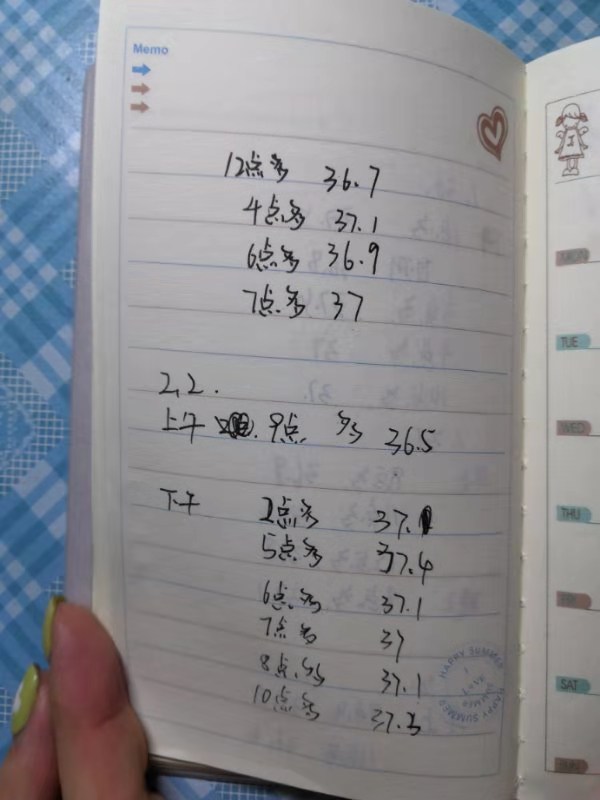 Memo
12点多 36.7
4点多 37.1
6点多 36.9
7点多 37
2.2.
上午 9点多 36.5
下午 2点多 37.1
5点多 37.4
6点多 37.1
7点多 37
8点多 37.1
10点多 37.3
HAPPY SUMMER
HAPPY SUMMER
MON
TUE
WED
THU
FRI
SAT
SUN